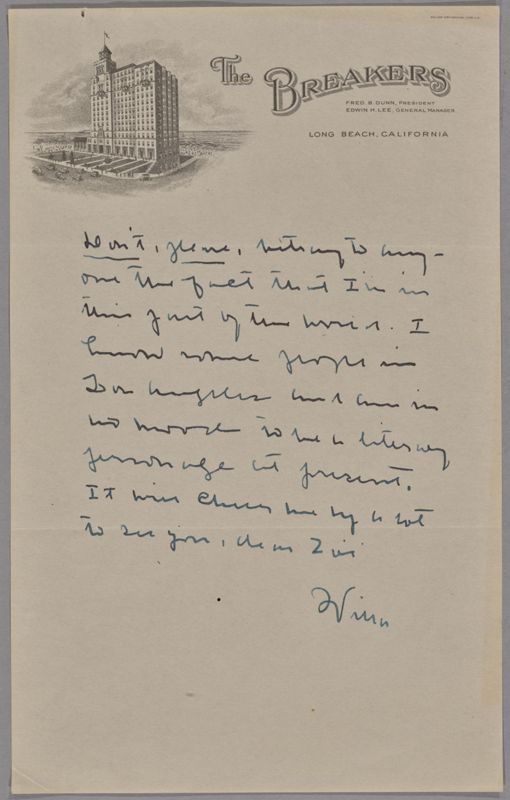 The BREAKERS
FRED B. DUNN, PRESIDENT
EDWIN H. LEE, GENERAL MANAGER
LONG BEACH, CALIFORNIA
Don't, please, betray to any-
one the fact that I'm in
this part of the world. I
know some people in
Los Angeles and am in
no mood to be a literary
personage at present.
It will cheer me up a lot
to see you, dear Zoë
Willa